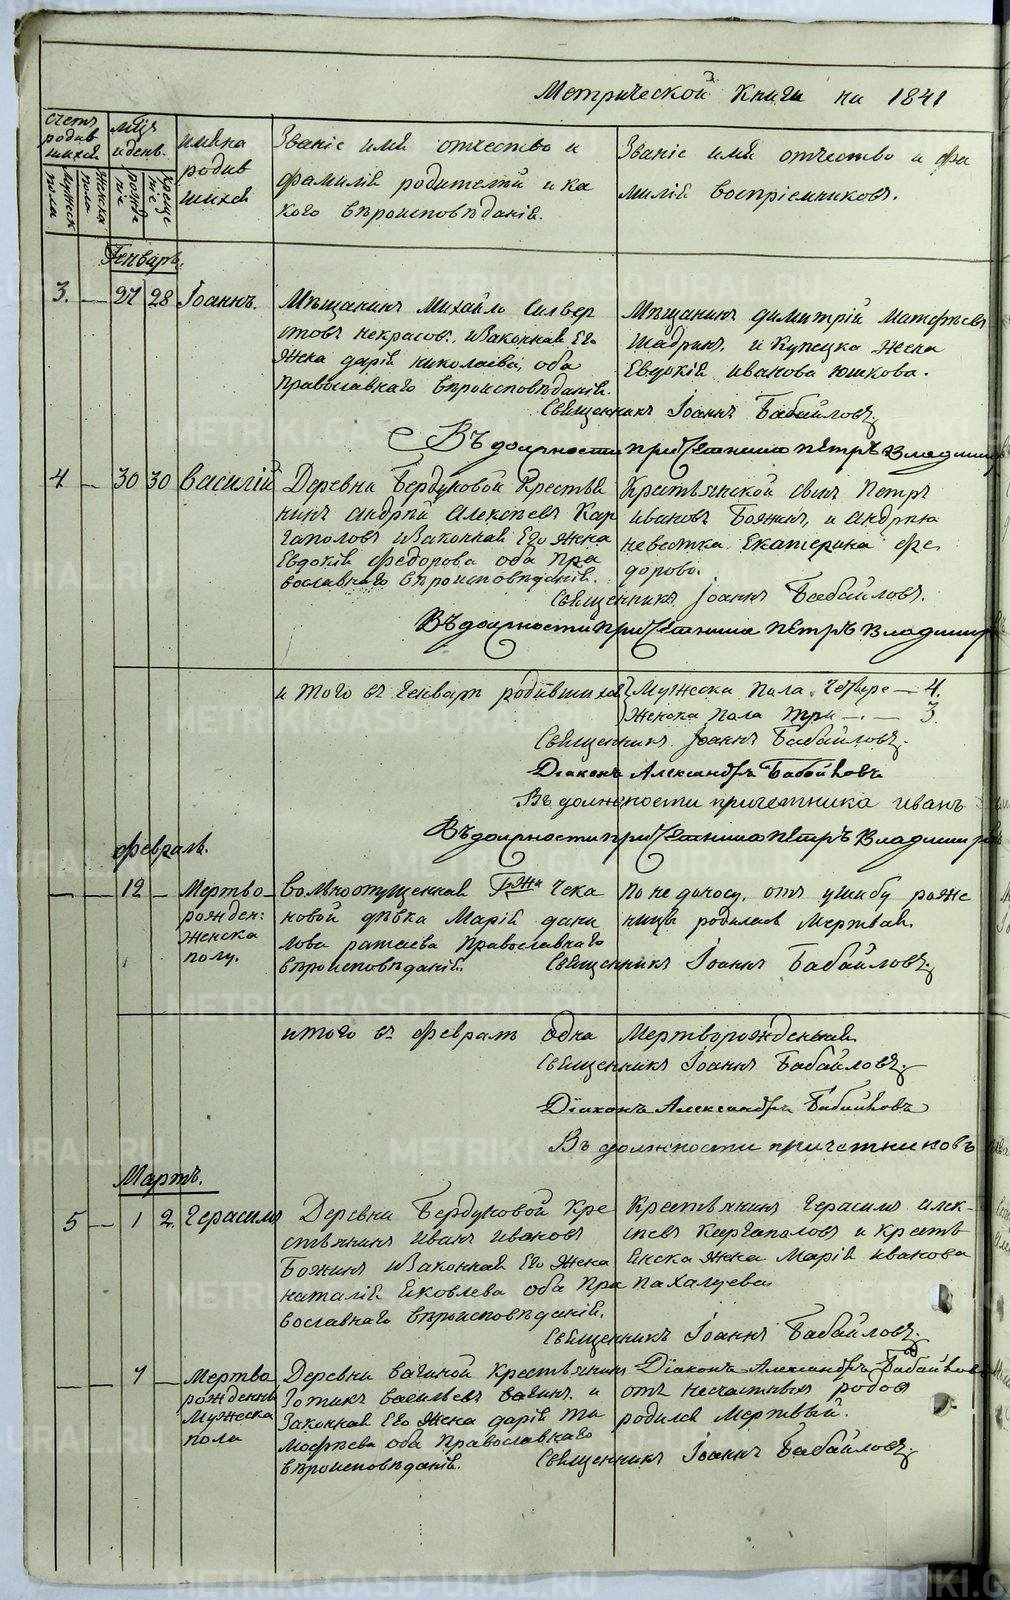 Метрической Книги на 1841
счетъ родив шихся
мцъ и день.
имяна родив шихся
Мужеск пола
Женска пола
рожде ніе
Креще ніе
Званіе имя отчество и
фамилія родителей и ка
кого вѣроисповѣданія.
Званіе имя отчество и фа
милія воспріемниковъ.
Генварь.
3. — 27 28 Іоаннъ.
Мѣщанинъ Михайло Силвер
стовъ некрасовъ, изаконная Его
Жена дарія николаева, оба
Православнаго вѣроисповѣданія.
Мѣщанинъ димитрій Матфѣевъ
Шадринъ, и Купецка Жена
Евдокія иванова юшкова.
Священникъ Іоаннъ Бабайловъ.
Въ должности причетника Петръ Владимир
4 — 30 30 Василій
Деревни Бердуковой Крестья
нинъ андрей Алексѣевъ Кар
гаполовъ изаконная Его Жена
Евдокія Федорова оба Пра
вославнаго вѣроисповѣданія.
Крестьянской сынъ Петръ
ивановъ Божинъ, и андрѣю
невестка Екатерина Фе
дорово.
Священникъ Іоаннъ Бабайловъ.
Въ должности причетника Петръ Владимир
и того въ Генварѣ родившихся
Мужеска пола Четыре — 4.
Женска пола три — . — 3
Священникъ Іоаннъ Бабайловъ.
Діаконъ Александръ Бабайловъ
Въ должности причетника иванъ
Въ должности причетника Петръ Владимир
февраль.
— — 12 — Мертво
рожден:
Женска
полу.
Вольноотпущенная Гжи Чека
новой дѣвка Марія дани
лова ратаева Православнаго
вѣроисповѣданія.
по не доносу, отъ ушибу роже
ницы родилась Мертвая.
Священникъ Іоаннъ Бабайловъ.
итого въ февралѣ одна Мертворожденная
Священникъ Іоаннъ Бабайловъ.
Діаконъ Александръ Бабайловъ
Въ должности причетниковъ
Мартъ.
5 — 1 2. Герасимъ
Деревни Бердуковой Кре
стьянинъ Иванъ Ивановъ
Божинъ изаконная Его Жена
наталія Яковлева оба Пра
вославнаго вѣроисповѣданія.
Крестьянинъ Герасимъ алек-
сѣевъ Каргаполовъ и кресть
янска Жена Марія иванова
Пахалуева
Священникъ Іоаннъ Бабайловъ.
Діаконъ Александръ Бабайловъ
— — 7 — Мертво
рожденны
Мужеска
пола
Деревни вагиной Крестьянинъ
Зотикъ васильевъ вагинъ, и
Законная Его Жена дарія ти
мофѣева оба Православнаго
вѣроисповѣданія.
отъ несчастныхъ родовъ
родился Мертвый.
Священникъ Іоаннъ Бабайловъ.
METRIKI.GASO-URAL.RU